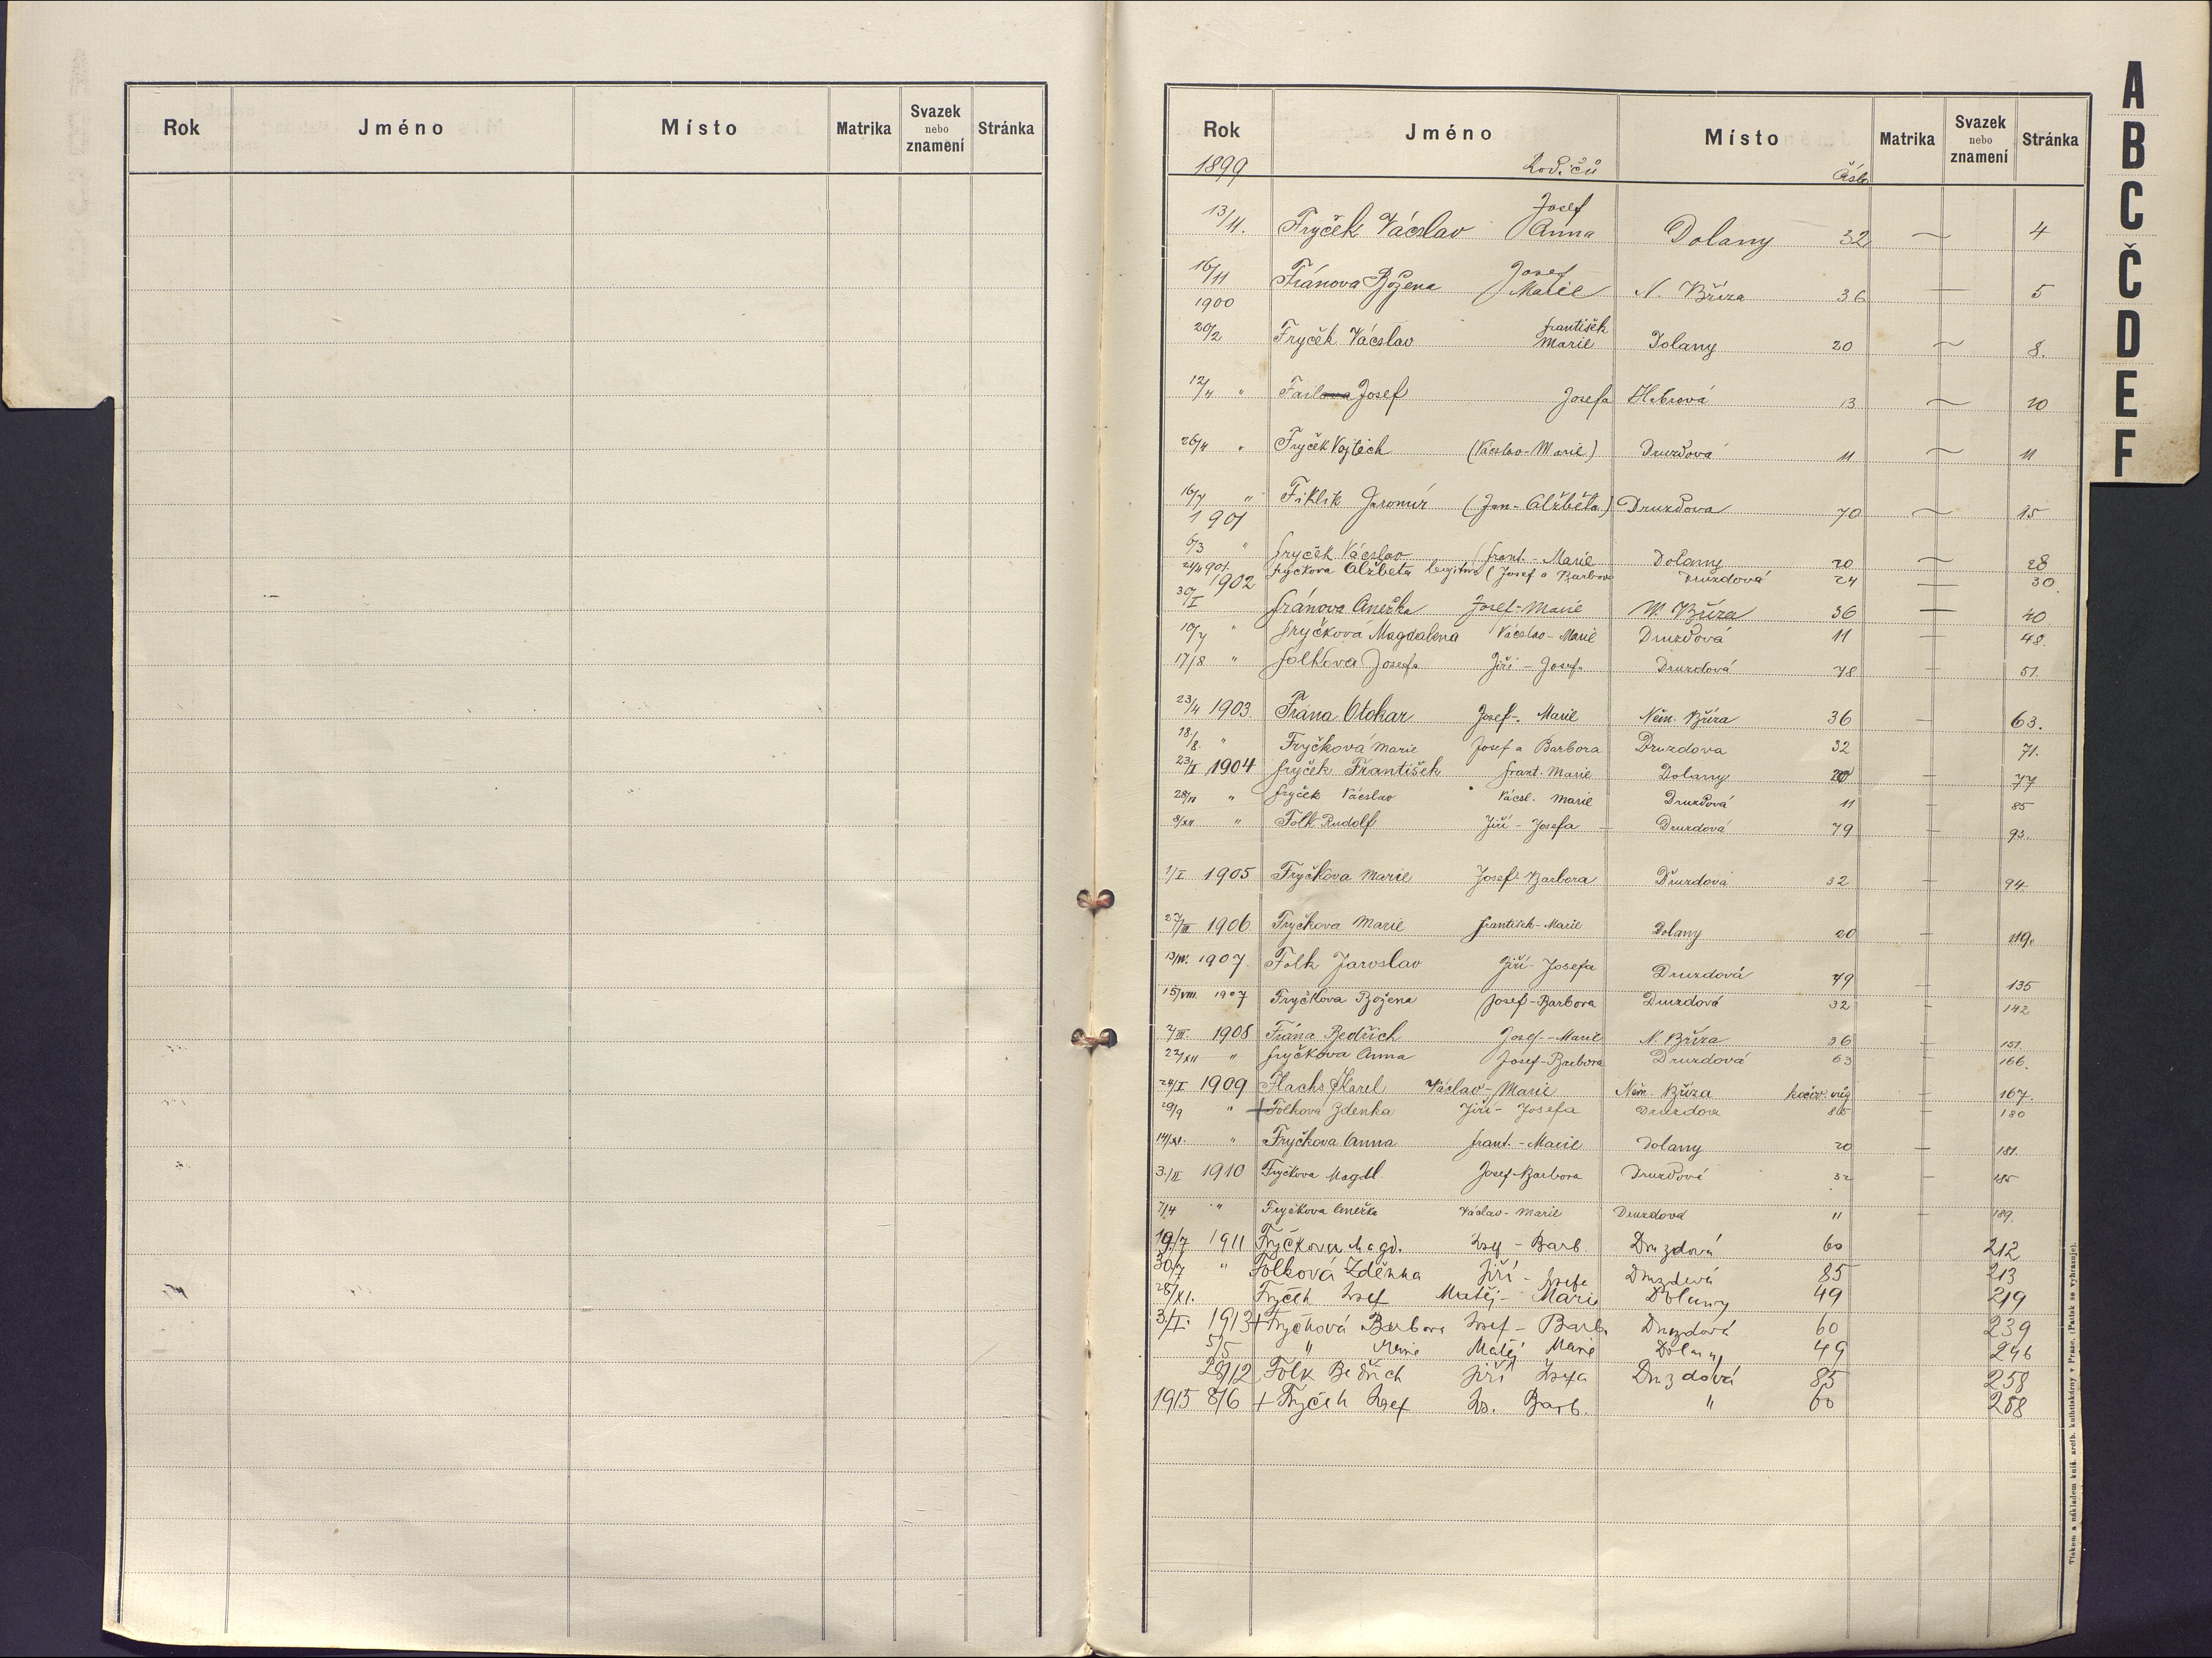 Rok Jméno Místo Matrika Svazek nebo znamení Stránka
Rok Jméno Místo Matrika Svazek nebo znamení Stránka
1899 Rodičů Číslo
13/11. Fryček Václav Josef Anna Dolany 32 — 4
16/11 Fránova Božena Josef Marie N. Bříza 36 — 5
1900
20/2 Fryček Václav František Marie Dolany 20 — 8.
12/4 " Josef Josefa 13 — 10
26/4 " Fryček Vojtěch (Václav-Marie) Druzdová 11 — 11
16/7 " Fiklík Jaromír (Jan-Alžběta) Druzdova 70 — 15
1901
6/3 " Fryček Václav (frant.-Marie Dolany 20 — 28
24/4 901. Fryčkova Alžběta (Josef a Barbora Druzdová 24 — 30
1902
30/I Fránova Anežka Josef-Marie N. Bříza 36 — 40
10/7 " Fryčková Magdalena Václav-Marie Druzdová 11 — 48.
17/8 " Folkova Josefa Jiří-Josefa Druzdová 78 — 51.
23/4 1903. Frána Otokar Josef-Marie Něm. Bříza 36 — 63.
18./8. " Fryčková Marie Josef a Barbora Druzdova 32 71.
23/I 1904 Fryček František frant. Marie Dolany 20 — 77
28/ " Fryček Václav Václ. Marie Druzdová 11 — 85
8/XII " Folk Rudolf Jiří-Josefa — Druzdová 79 — 93.
1/I 1905 Fryčkova Marie Josef Barbora Druzdová 32 — 94
27/III 1906 Fryčkova Marie František-Marie Dolany 20 — 119.
13/IV. 1907. Folk Jaroslav Jiří-Josefa Druzdová 79 — 135
15/VIII. 1907 Fryčkova Božena Josef-Barbora Druzdová 32 — 142
2/III. 1908 Frána Bedřich Josef-Marie N. Bříza 36 — 151.
22/XII " Fryčkova Anna Josef-Barbora Druzdová 63 — 166.
24/I 1909 Flachs Karel Václav-Marie Něm. Bříza kočov. vůz — 167.
29/9 " + Folkova Zdenka Jiří-Josefa Druzdova 85 — 180
14/XI. " Fryčkova Anna frant.-Marie Dolany 20 — 181.
3./II 1910 Fryčkova Magdl. Josef-Barbora Druzdová 32 — 185
7/4 " Fryčkova Anežka Václav-Marie Druzdová 11 — 189.
19./7 1911 Fryčkova Magd. Josef-Barb. Druzdová 60 212
30/7 " Folková Zděnka Jiří-Josefa Druzdová 85 213
28/XI. Fryček Josef Matěj-Marie Dolany 49 219
3./I. 1913 + Fryčková Barbora Josef-Barb. Druzdová 60 239
5/5 " Marie Matěj Marie Dolany 49 246
29/12 Folk Bedřich Jiří Josefa Druzdová 85 258
1915 8/6 + Fryček Josef Jos. Barb. " 60 288
A
B
C
Č
D
E
F
Tiskem a nákladem kníž. arcib. knihtiskárny v Praze. (Patisk se vyhrazuje).